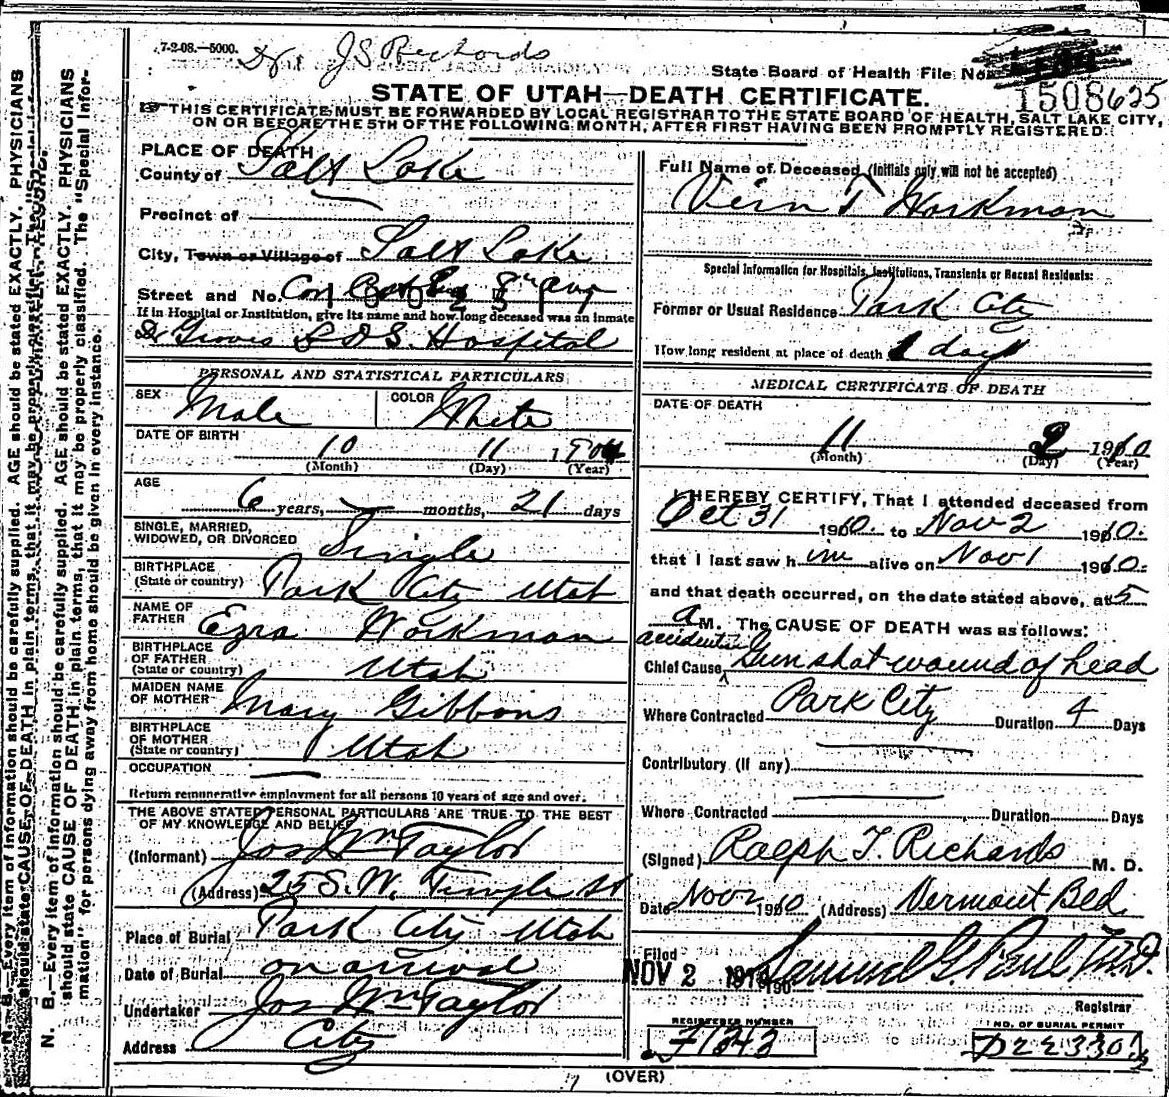 7-2-08.—5000.
Dr. J S Richards
State Board of Health File No.
1508625
STATE OF UTAH—DEATH CERTIFICATE.
THIS CERTIFICATE MUST BE FORWARDED BY LOCAL REGISTRAR TO THE STATE BOARD OF HEALTH, SALT LAKE CITY,
ON OR BEFORE THE 5TH OF THE FOLLOWING MONTH, AFTER FIRST HAVING BEEN PROMPTLY REGISTERED.
PLACE OF DEATH
County of Salt Lake
Precinct of
City, Town or Village of Salt Lake
Street and No. Cor 8th Ave
If in Hospital or Institution, give its name and how long deceased was an inmate
Dr Groves L D S. Hospital
PERSONAL AND STATISTICAL PARTICULARS
SEX Male COLOR White
DATE OF BIRTH 10 11 1904
(Month) (Day) (Year)
AGE
6 years, — months, 21 days
SINGLE, MARRIED,
WIDOWED, OR DIVORCED Single
BIRTHPLACE
(State or country) Park City Utah
NAME OF
FATHER Ezra Workman
BIRTHPLACE
OF FATHER
(State or country) Utah
MAIDEN NAME
OF MOTHER Mary Gibbons
BIRTHPLACE
OF MOTHER
(State or country) Utah
OCCUPATION —
Return remunerative employment for all persons 10 years of age and over.
THE ABOVE STATED PERSONAL PARTICULARS ARE TRUE TO THE BEST
OF MY KNOWLEDGE AND BELIEF
(Informant) Jos Wm Taylor
(Address) 25 S. W. Temple St
Place of Burial Park City Utah
Date of Burial on arrival
Undertaker Jos Wm Taylor
Address City
Full Name of Deceased (Initials only will not be accepted)
Vern T Workman
Special Information for Hospitals, Institutions, Transients or Recent Residents:
Former or Usual Residence Park City
How long resident at place of death 1 day
MEDICAL CERTIFICATE OF DEATH
DATE OF DEATH
11 2 1910
(Month) (Day) (Year)
I HEREBY CERTIFY, That I attended deceased from
Oct 31 1910. to Nov 2 1910.
that I last saw him alive on Nov 1 1910.
and that death occurred, on the date stated above, at 5
a M. The CAUSE OF DEATH was as follows:
accidental
Chief Cause Gun shot wound of head
Where Contracted Park City Duration 4 Days
Contributory (if any)
Where Contracted Duration Days
(Signed) Ralph T. Richards M. D.
Date Nov 2 1910 (Address) Vermont Bld.
Filed
NOV 2 1910 190 Samuel G. Paul, M.D.
Registrar
REGISTERED NUMBER
71343
NO. OF BURIAL PERMIT
D22330
(OVER)
N. B.—Every item of information should be carefully supplied. AGE should be stated EXACTLY. PHYSICIANS
should state CAUSE OF DEATH in plain terms, that it may be properly classified. The "Special Infor-
mation" for persons dying away from home should be given in every instance.